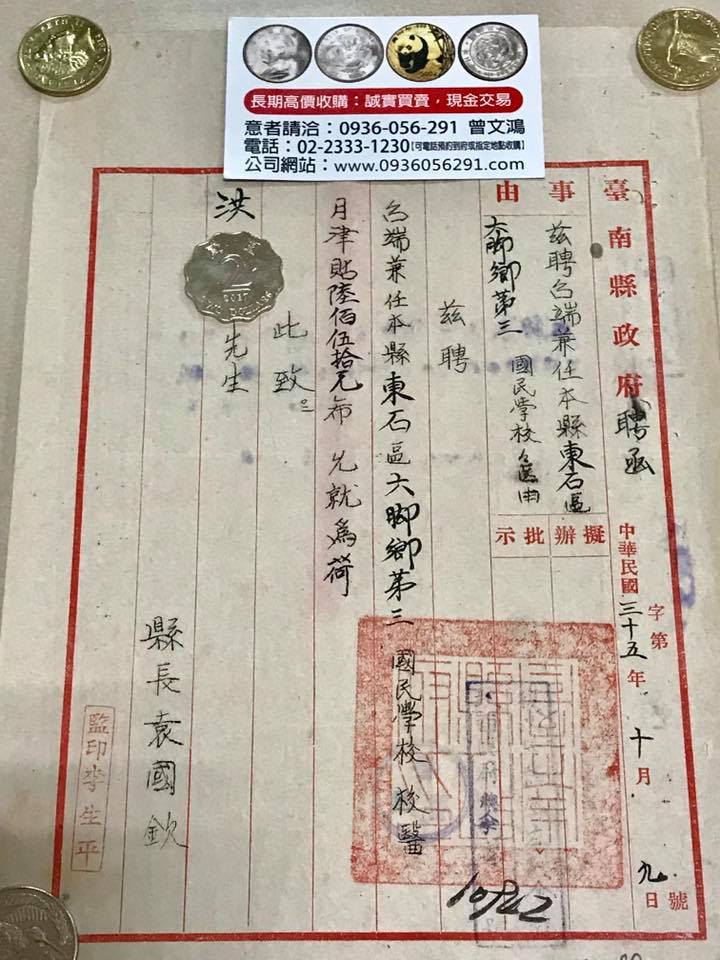 長期高價收購：誠實買賣，現金交易
意者請洽：0936-056-291 曾文鴻
電話：02-2333-1230【可電話預約到府或指定地點收購】
公司網站：www.0936056291.com
臺南縣政府聘函
中華民國三十五年十月九日
字第
號
事由
茲聘台端兼任本縣東石區
大脚鄉第三 國民學校
擬辦
批示
茲聘
台端兼任本縣東石區六脚鄉第三 國民學校 校醫
月津貼陸佰伍拾元布 允就為荷
此致
洪
先生
縣長袁國欽
監印李生平
2
2017
TWO DOLLARS